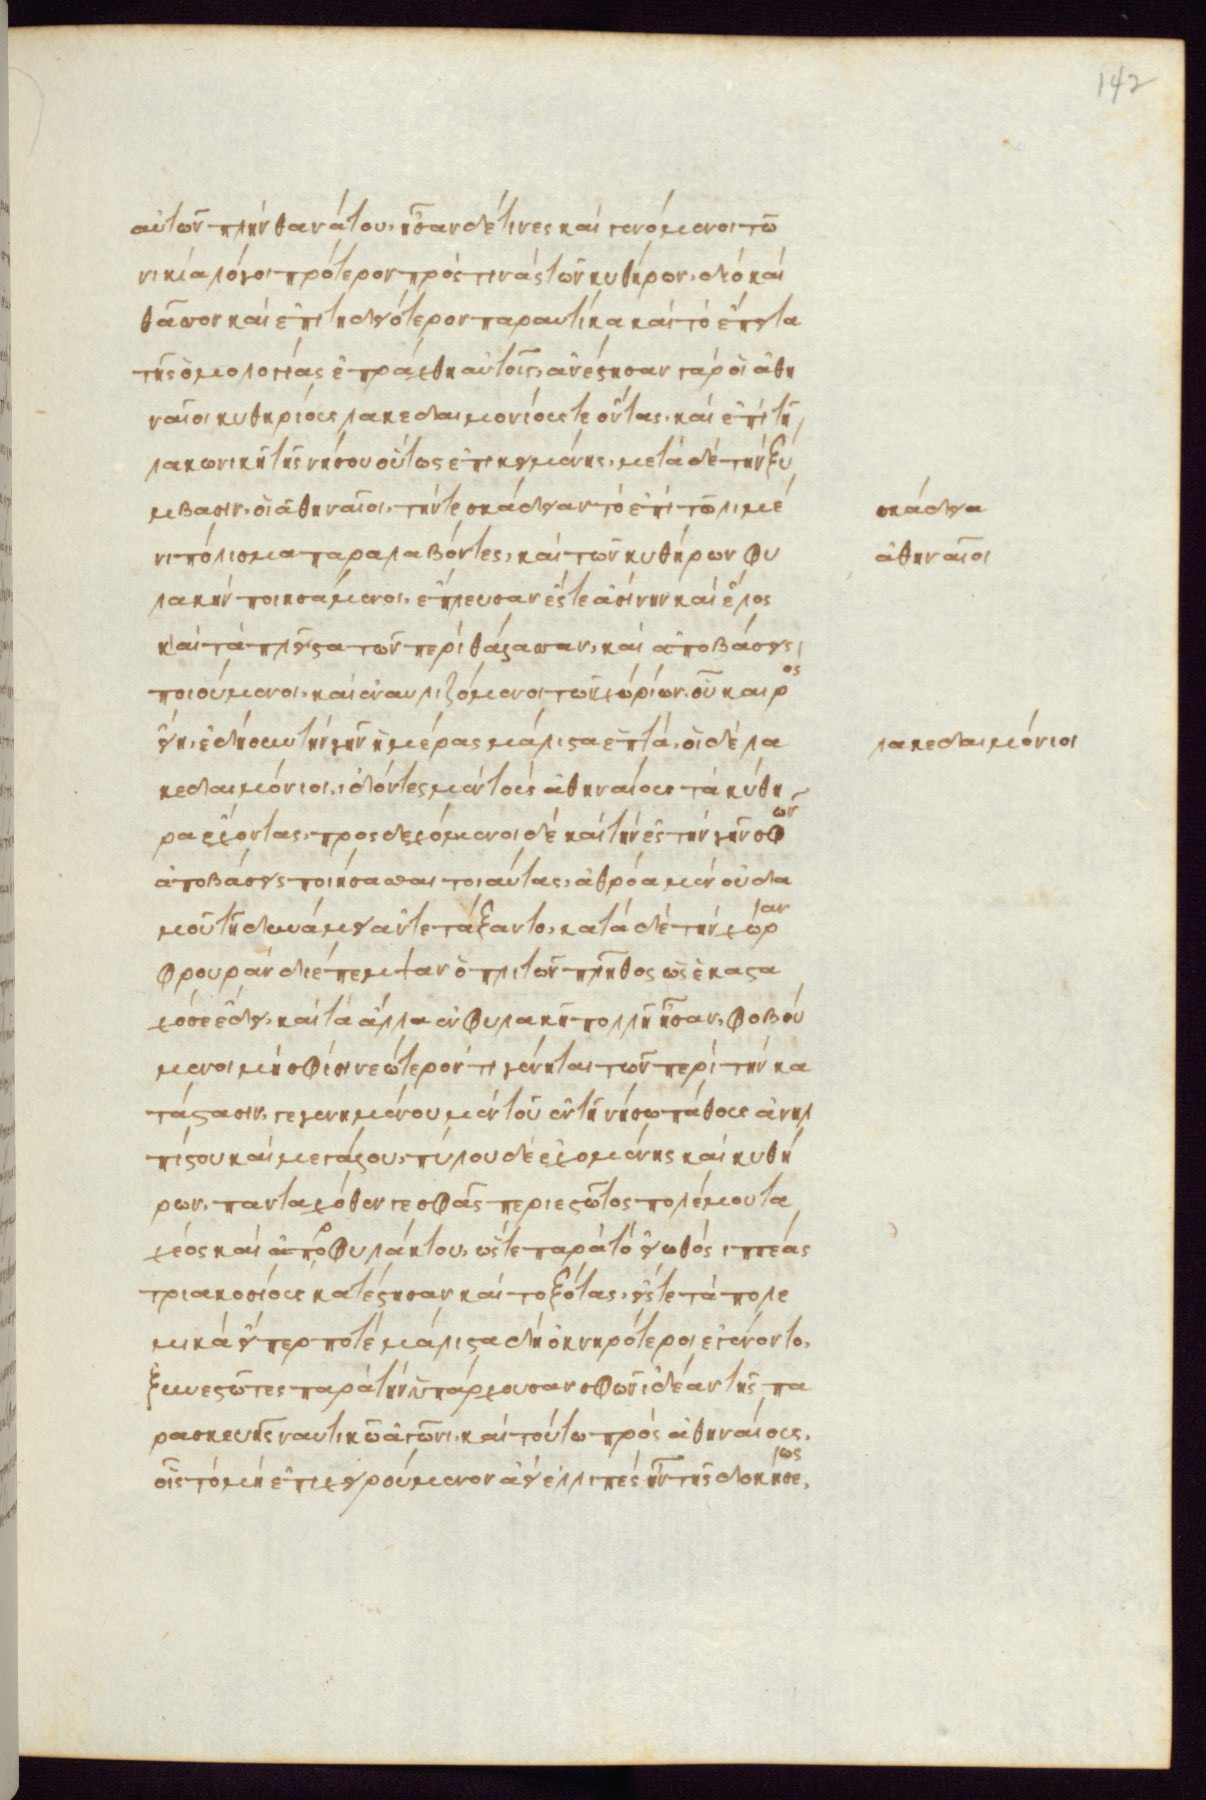 142
αὐτῶν πλὴν θανάτου, ἦσαν δέ τινες καὶ γενόμενοι τῶ
νικία λόγοι πρότερον πρός τινας τῶν κυθήρων, διὸ καὶ
θᾶσσον καὶ ἐπιτηδειότερον παραυτίκα καὶ τὸ ἔπειτα
τῆς ὁμολογίας ἐπράχθη αὐτοῖς, ἀνέστησαν γὰρ οἱ ἀθη
ναῖοι κυθηρίους λακεδαιμονίους τε ὄντας, καὶ ἐπὶ τῆ
λακωνικῆ τῆς νήσου οὕτως ἐπικειμένης, μετὰ δὲ τὴν ξύ
μβασιν, οἱ ἀθηναῖοι, τήν τε σκάδειαν τὸ ἐπὶ τῶ λιμέ
σκάδεια
νι πόλισμα παραλαβόντες, καὶ τῶν κυθήρων φυ
ἀθηναῖοι
λακὴν ποιησάμενοι, ἔπλευσαν ἔς τε ἀσίνην καὶ ἕλος
καὶ τὰ πλεῖστα τῶν περὶ θάλασσαν, καὶ ἀποβάσεις
ποιούμενοι, καὶ ἐναυλιζόμενοι τῶν χωρίων, οὗ καιρὸς
εἴη, ἐδήουν τὴν γῆν ἡμέρας μάλιστα ἑπτά, οἱ δὲ λα
λακεδαιμόνιοι
κεδαιμόνιοι, ἰδόντες μὲν τοὺς ἀθηναίους τὰ κύθη
ρα ἔχοντας, προσδεχόμενοι δὲ καὶ τὴν ἐς τὴν γῆν σφῶν
ἀποβάσεις ποιήσασθαι τοιαύτας, ἀθρόα μὲν οὐδα
μοῦ τῆ δυνάμει ἀντετάξαντο, κατὰ δὲ τὴν χώραν
φρουρὰν διέπεμψαν ὁπλιτῶν πλῆθος ὡς ἑκασταχόσε ἔδει, καὶ τὰ ἄλλα ἐν φυλακῆ πολλῆ ἦσαν, φοβού
μενοι μὴ σφίσι νεώτερόν τι γένηται τῶν περὶ τὴν κα
τάστασιν, γεγενημένου μὲν τοῦ ἐν τῆ νήσω πάθους ἀνελ
πίστου καὶ μεγάλου, πύλου δὲ ἐχομένης καὶ κυθή
ρων, πανταχόθεν τε σφᾶς περιεστῶτος πολέμου τα
χέος καὶ ἀπροφυλάκτου, ὥστε παρὰ τὸ εἰωθὸς ἱππέας
τριακοσίους κατέστησαν καὶ τοξότας, εἴς τε τὰ πολε
μικὰ εἴπερ ποτὲ μάλιστα δὴ ὀκνηρότεροι ἐγένοντο,
ξυνεστῶτες παρὰ τὴν ὑπάρχουσαν σφῶν ἰδέαν τῆς πα
ρασκευῆς ναυτικῶ ἀγῶνι, καὶ τούτω πρὸς ἀθηναίους,
οἷς τὸ μὴ ἐπιχειρούμενον ἀεὶ ἐλλιπὲς ἦν τῆς δοκήσεως,